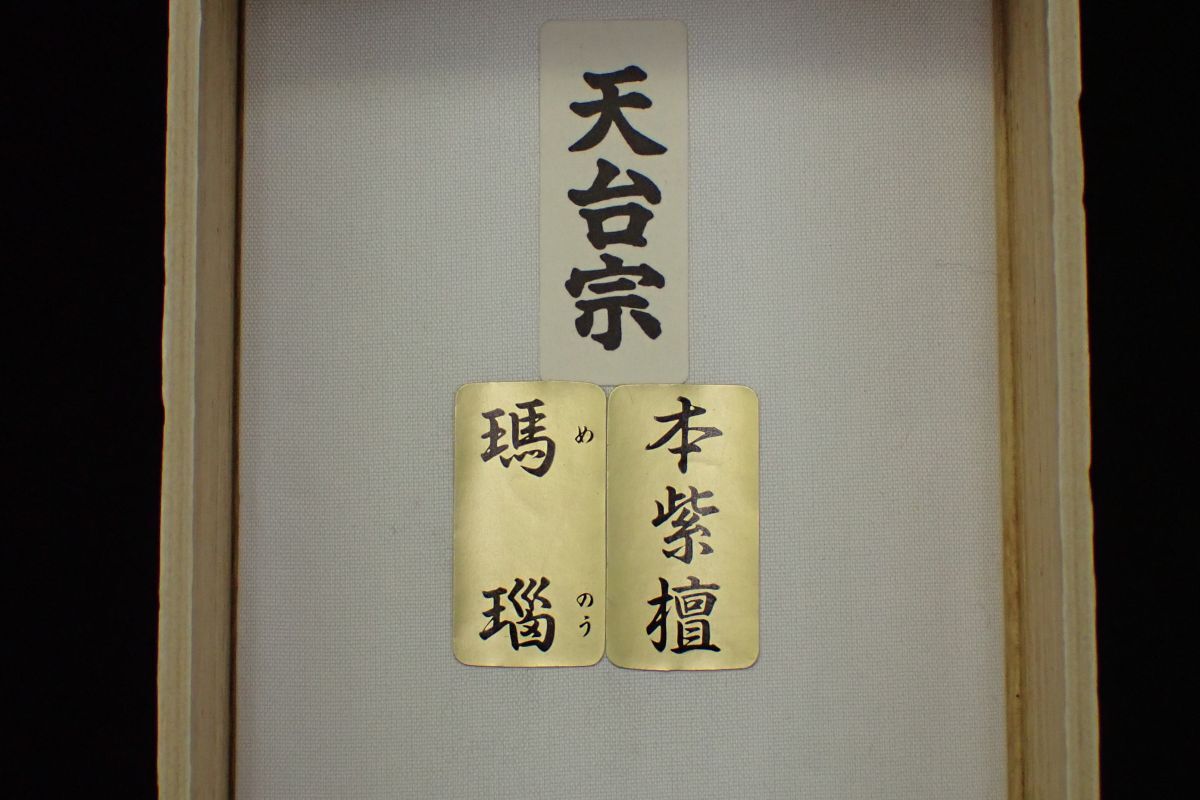 天台宗
本紫檀
瑪瑙
めのう